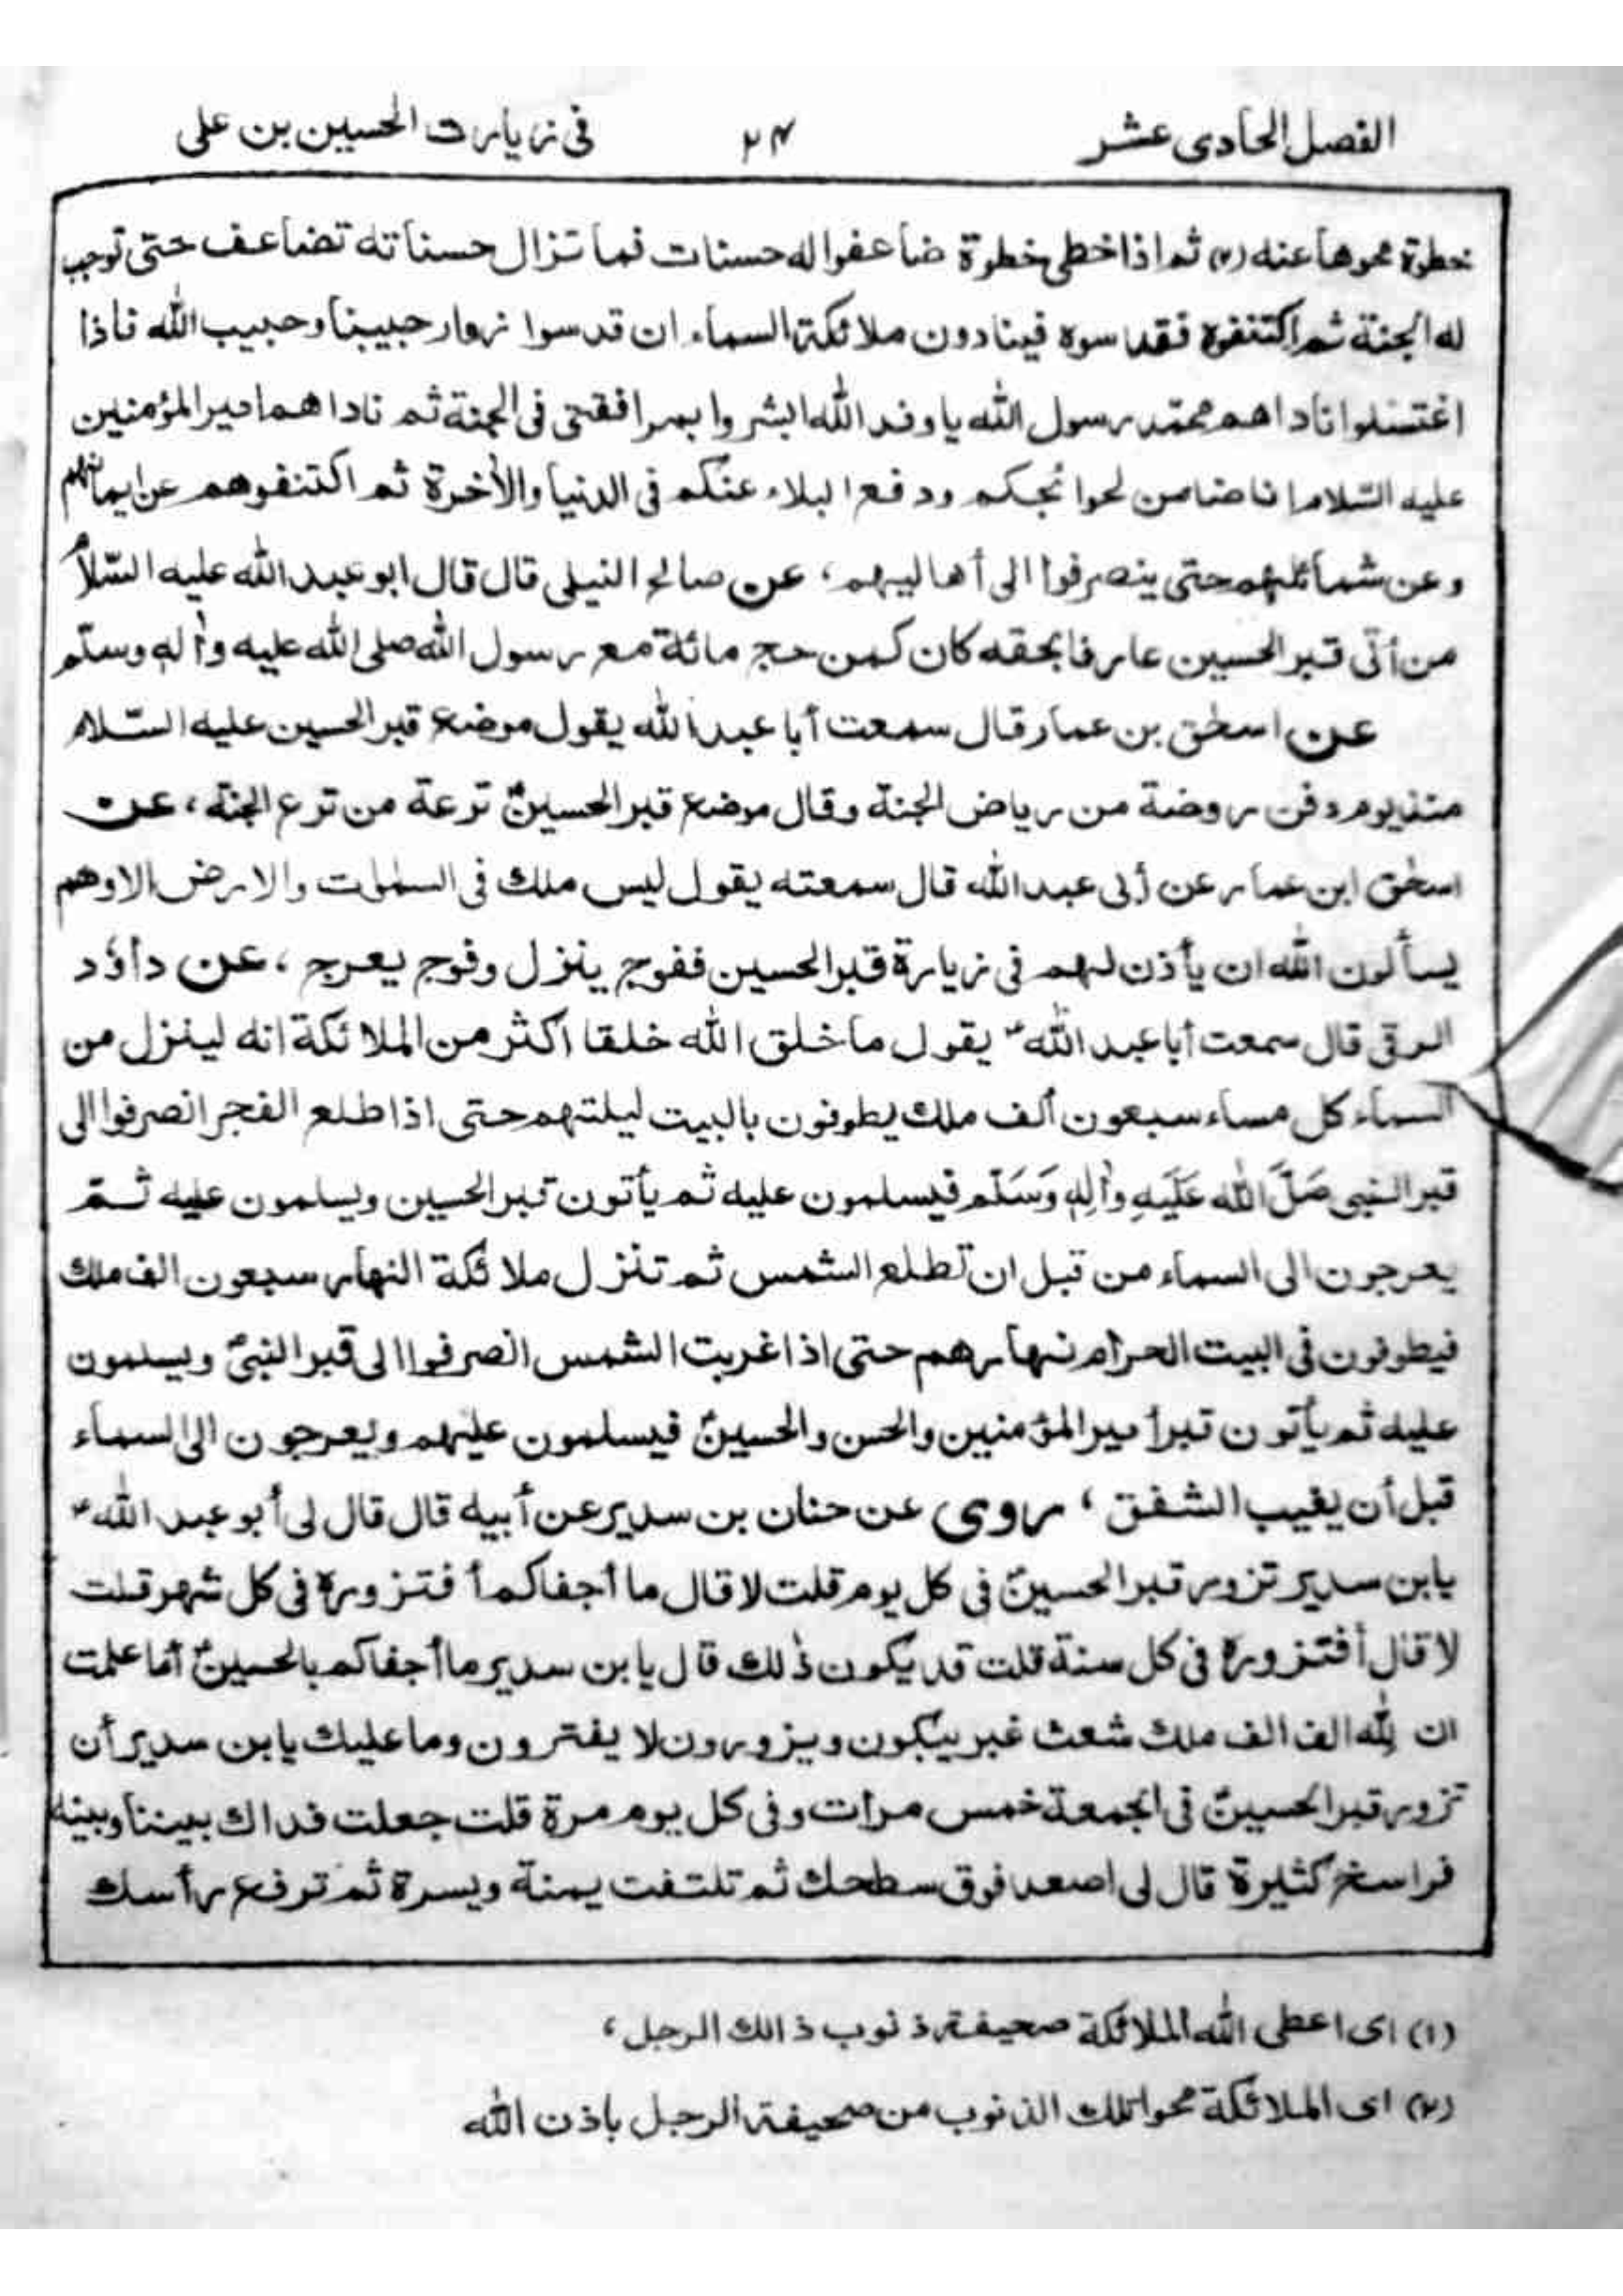 الفصل الحادی عشر
۲۴
فی زیارت الحسین بن علی
خطوة محوها عنه (۲) ثم اذا خطی خطوة ضاعفوا له حسنات فما تزال حسناته تضاعف حتی توجب
له الجنة ثم اکتنفوه فقدسوه فینادون ملائکة السماء ان قدسوا زوار حبیبنا وحبیب الله فاذا
اغتسلوا ناداهم محمّد رسول الله یا وفد الله ابشروا بمرافقتی فی الجنة ثم ناداهم امیر المؤمنین
علیه السّلام انا ضامن لحوائجکم ودفع البلاء عنکم فی الدنیا والأخرة ثم اکتنفوهم عن ایمانهم
وعن شمائلهم حتی ینصرفوا الی أهالیهم، عن صالح النیلی قال قال ابو عبد الله علیه السّلام
من أتی قبر الحسین عارفا بحقه کان کمن حج مائة مع رسول الله صلی الله علیه وأله وسلّم
عن اسحٰق بن عمار قال سمعت أبا عبد الله یقول موضع قبر الحسین علیه السّلام
منذ یوم دفن روضة من ریاض الجنة وقال موضع قبر الحسینؑ ترعة من ترع الجنة، عن
اسحٰق ابن عمار عن أبی عبد الله قال سمعته یقول لیس ملك فی السمٰوات والارض الا وهم
یسألون الله ان یأذن لهم فی زیارة قبر الحسین ففوج ینزل وفوج یعرج، عن داؤد
الرقی قال سمعت أبا عبد اللهؑ یقول ما خلق الله خلقا اکثر من الملائکة انه لینزل من
السماء کل مساء سبعون ألف ملك یطوفون بالبیت لیلتهم حتی اذا طلع الفجر انصرفوا الی
قبر النبی صَلَّ الله عَلَیهِ وأٰلِهٖ وَسَلّم فیسلمون علیه ثم یأتون قبر الحسین ویسلمون علیه ثمّ
یعرجون الی السماء من قبل ان تطلع الشمس ثم تنزل ملائکة النهار سبعون الف ملك
فیطوفون فی البیت الحرام نهارهم حتی اذا غربت الشمس انصرفوا الی قبر النبیؐ ویسلمون
علیه ثم یأتون قبر أمیر المؤمنین والحسن والحسینؑ فیسلمون علیهم ویعرجون الی السماء
قبل أن یغیب الشفق، روی عن حنان بن سدیر عن أبیه قال قال لی أبو عبد اللهؑ
یابن سدیر تزور قبر الحسینؑ فی کل یوم قلت لا قال ما أجفاکم أ فتزوره فی کل شهر قلت
لا قال أفتزوره فی کل سنة قلت قد یکون ذٰلك قال یا بن سدیر ما أجفاکم بالحسینؑ أما علمت
ان لِلّٰه الف الف ملك شعث غبر یبکون ویزورون لا یفترون وما علیك یابن سدیر أن
تزور قبر الحسینؑ فی الجمعة خمس مرات وفی کل یوم مرة قلت جعلت فداك بیننا وبینه
فراسخ کثیرة قال لی اصعد فوق سطحك ثم تلتفت یمنة ویسرة ثم ترفع رأسك
(۱) ای اعطی الله الملائکة صحیفة ذنوب ذالك الرجل،
(۲) ای الملائکة محوا تلك الذنوب من صحیفة الرجل باذن الله